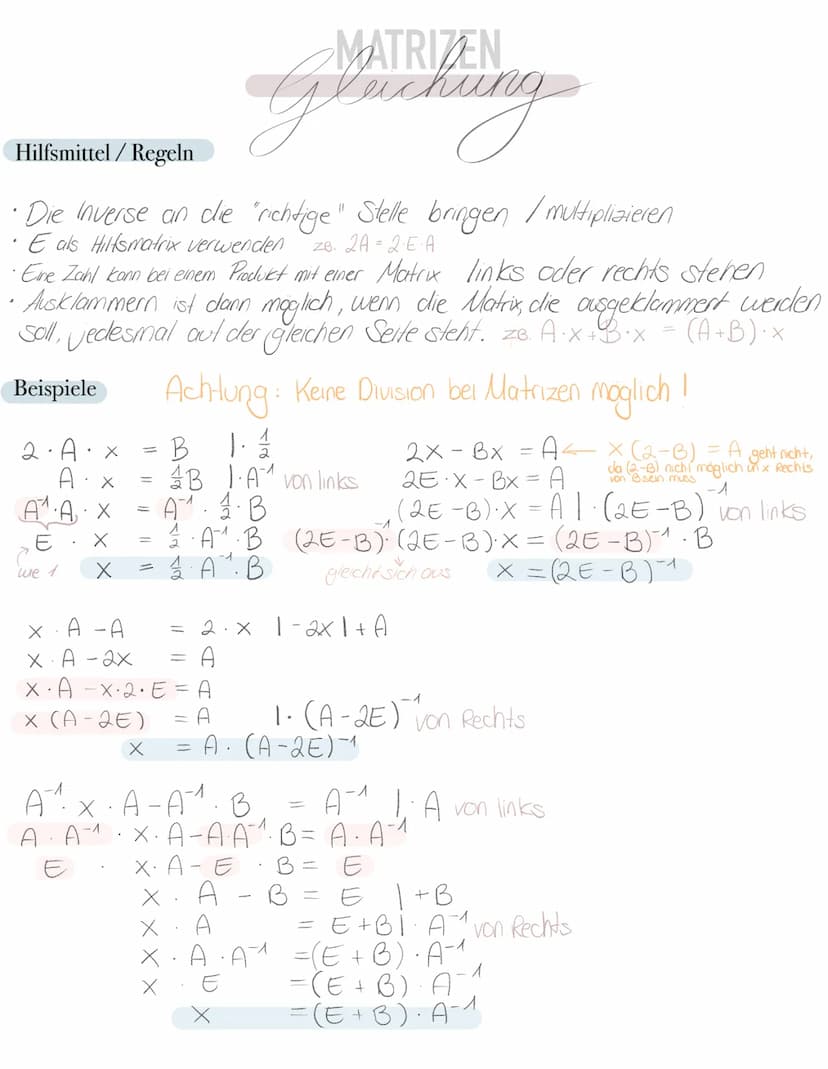 MATRIZEN
Gleichung
Hilfsmittel / Regeln
· Die Inverse an die "richtige" Stelle bringen / multiplizieren
· E als Hilfsmatrix verwenden zB. 2A = 2·E·A
· Eine Zahl kann bei einem Produkt mit einer Matrix links oder rechts stehen
· Ausklammern ist dann möglich, wenn die Matrix, die ausgeklammert werden
soll, jedesmal auf der gleichen Seite steht. zB. A·x + B·x = (A+B)·x
Beispiele
Achtung: Keine Division bei Matrizen möglich!
2·A·x = B |·½
A·x = ½B |·A⁻¹ von links
A⁻¹·A·x = A⁻¹·½·B
E·x = ½·A⁻¹·B
wie 1
x = ½·A⁻¹·B
2x − Bx = A ← x(2−B) = A geht nicht,
da (2−B) nicht möglich u. x Rechts
von B sein muss
2E·x − Bx = A
(2E−B)·x = A |·(2E−B)⁻¹ von links
(2E−B)⁻¹·(2E−B)·x = (2E−B)⁻¹·B
gleicht sich aus
x = (2E−B)⁻¹
x·A − A = 2·x |−2x |+A
x·A − 2x = A
x·A − x·2·E = A
x (A−2E) = A |·(A−2E)⁻¹ von Rechts
x = A·(A−2E)⁻¹
A⁻¹·x·A − A⁻¹·B = A⁻¹ |·A von links
A·A⁻¹·x·A − A·A⁻¹·B = A·A⁻¹
E·x·A − E·B = E
x·A − B = E |+B
x·A = E+B |·A⁻¹ von Rechts
x·A·A⁻¹ = (E+B)·A⁻¹
x·E = (E+B)·A⁻¹
x = (E+B)·A⁻¹